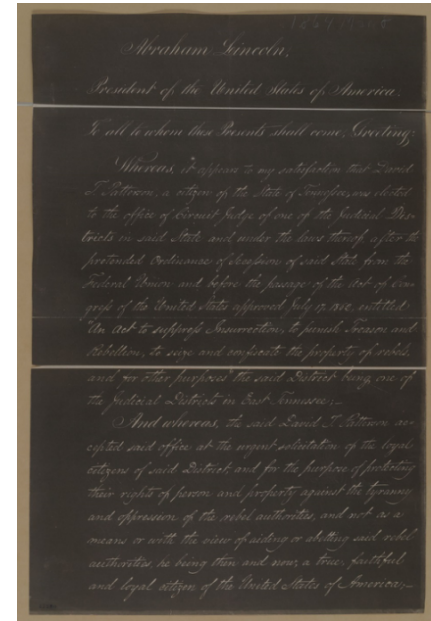 Abraham Lincoln,
President of the United States of America.
To all to whom these Presents shall come, Greeting:
Whereas, it appears to my satisfaction that David
T. Patterson, a citizen of the State of Tennessee, was elected
to the office of Circuit Judge of one of the Judicial Dis-
tricts in said State and under the laws thereof, after the
pretended Ordinance of Secession of said State from the
Federal Union and before the passage of the Act of Con-
gress of the United States approved July 17. 1862, entitled
"An Act to suppress Insurrection, to punish Treason and
Rebellion, to seize and confiscate the property of rebels,
and for other purposes" the said District being one of
the Judicial Districts in East Tennessee;—
And whereas, the said David T. Patterson ac-
cepted said office at the urgent solicitation of the loyal
citizens of said District and for the purpose of protecting
their rights of person and property against the tyranny
and oppression of the rebel authorities, and not as a
means or with the view of aiding or abetting said rebel
authorities, he being then and now, a true, faithful
and loyal citizen of the United States of America;—